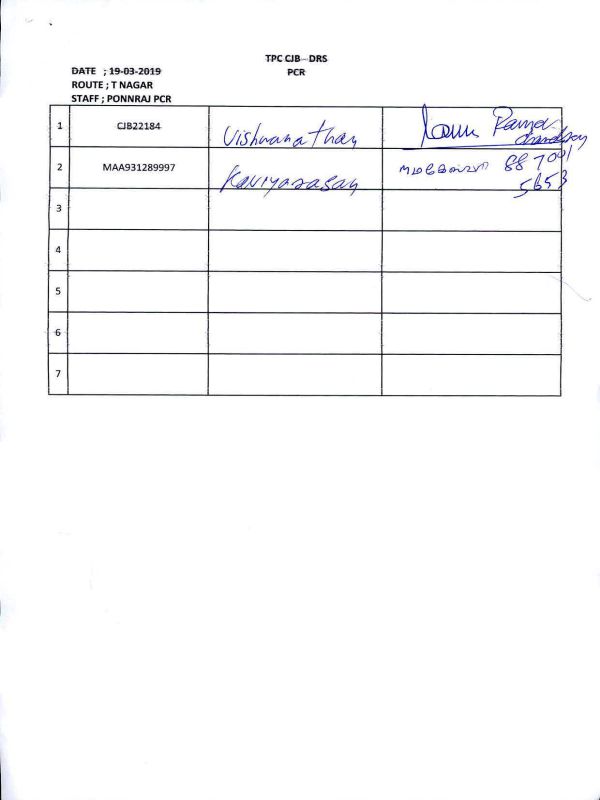 TPC CJB - DRS
PCR
DATE ; 19-03-2019
ROUTE ; T NAGAR
STAFF ; PONNRAJ PCR
1 CJB22184 Vishwanathan Rama
chandran
2 MAA931289997 Kaviyarasan
5653
3
4
5
6
7